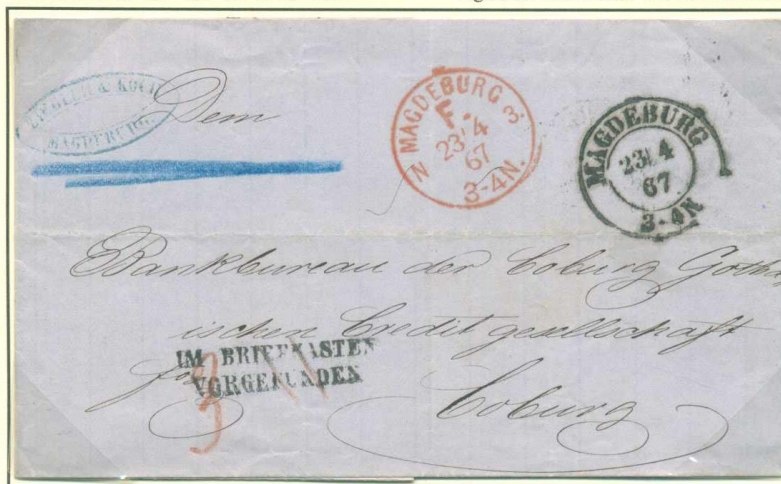 ZIEGLER & KOCH
MAGDEBURG.
MAGDEBURG
F.
23 4
67
N 3
3-4N.
MAGDEBURG
23 4
67
3-4N
Dem
Bankbureau der Coburg Gotha
ischen Creditgesellschaft
IM BRIEFKASTEN
VORGEFUNDEN
3
Coburg